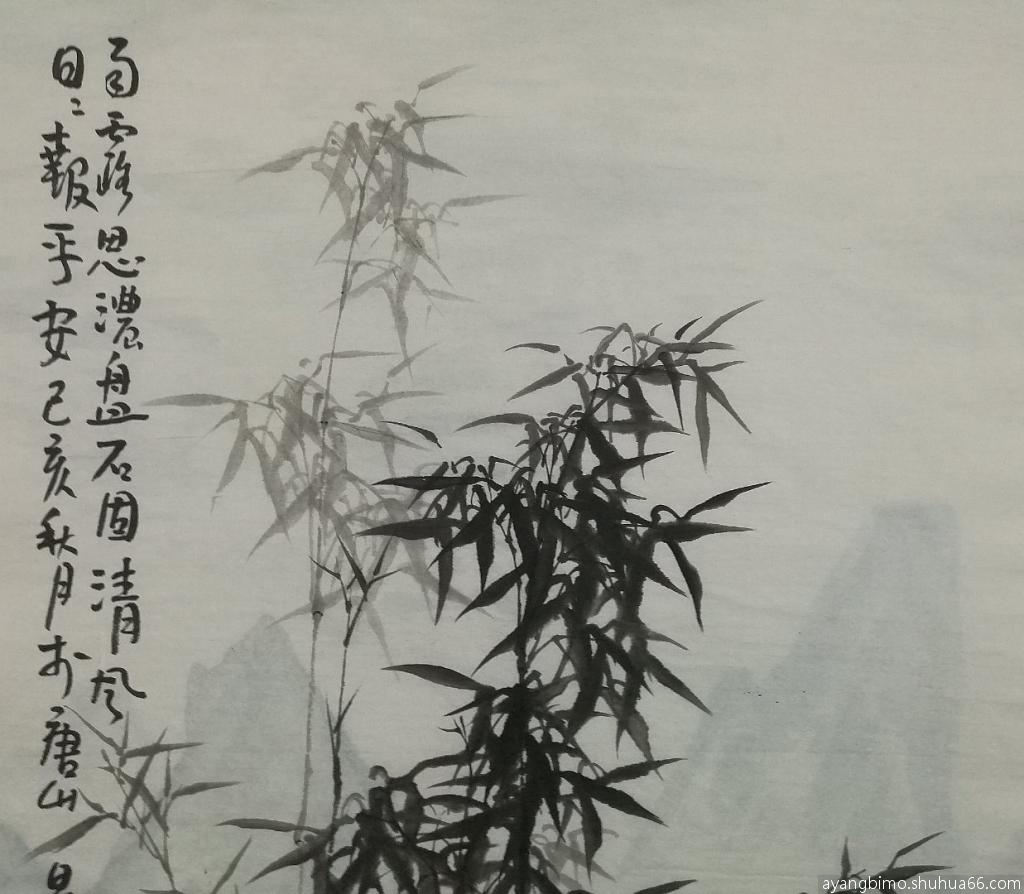 雨露恩濃盘石固清风
日々報平安己亥秋月於唐山
ayangbimo.shuhua66.com